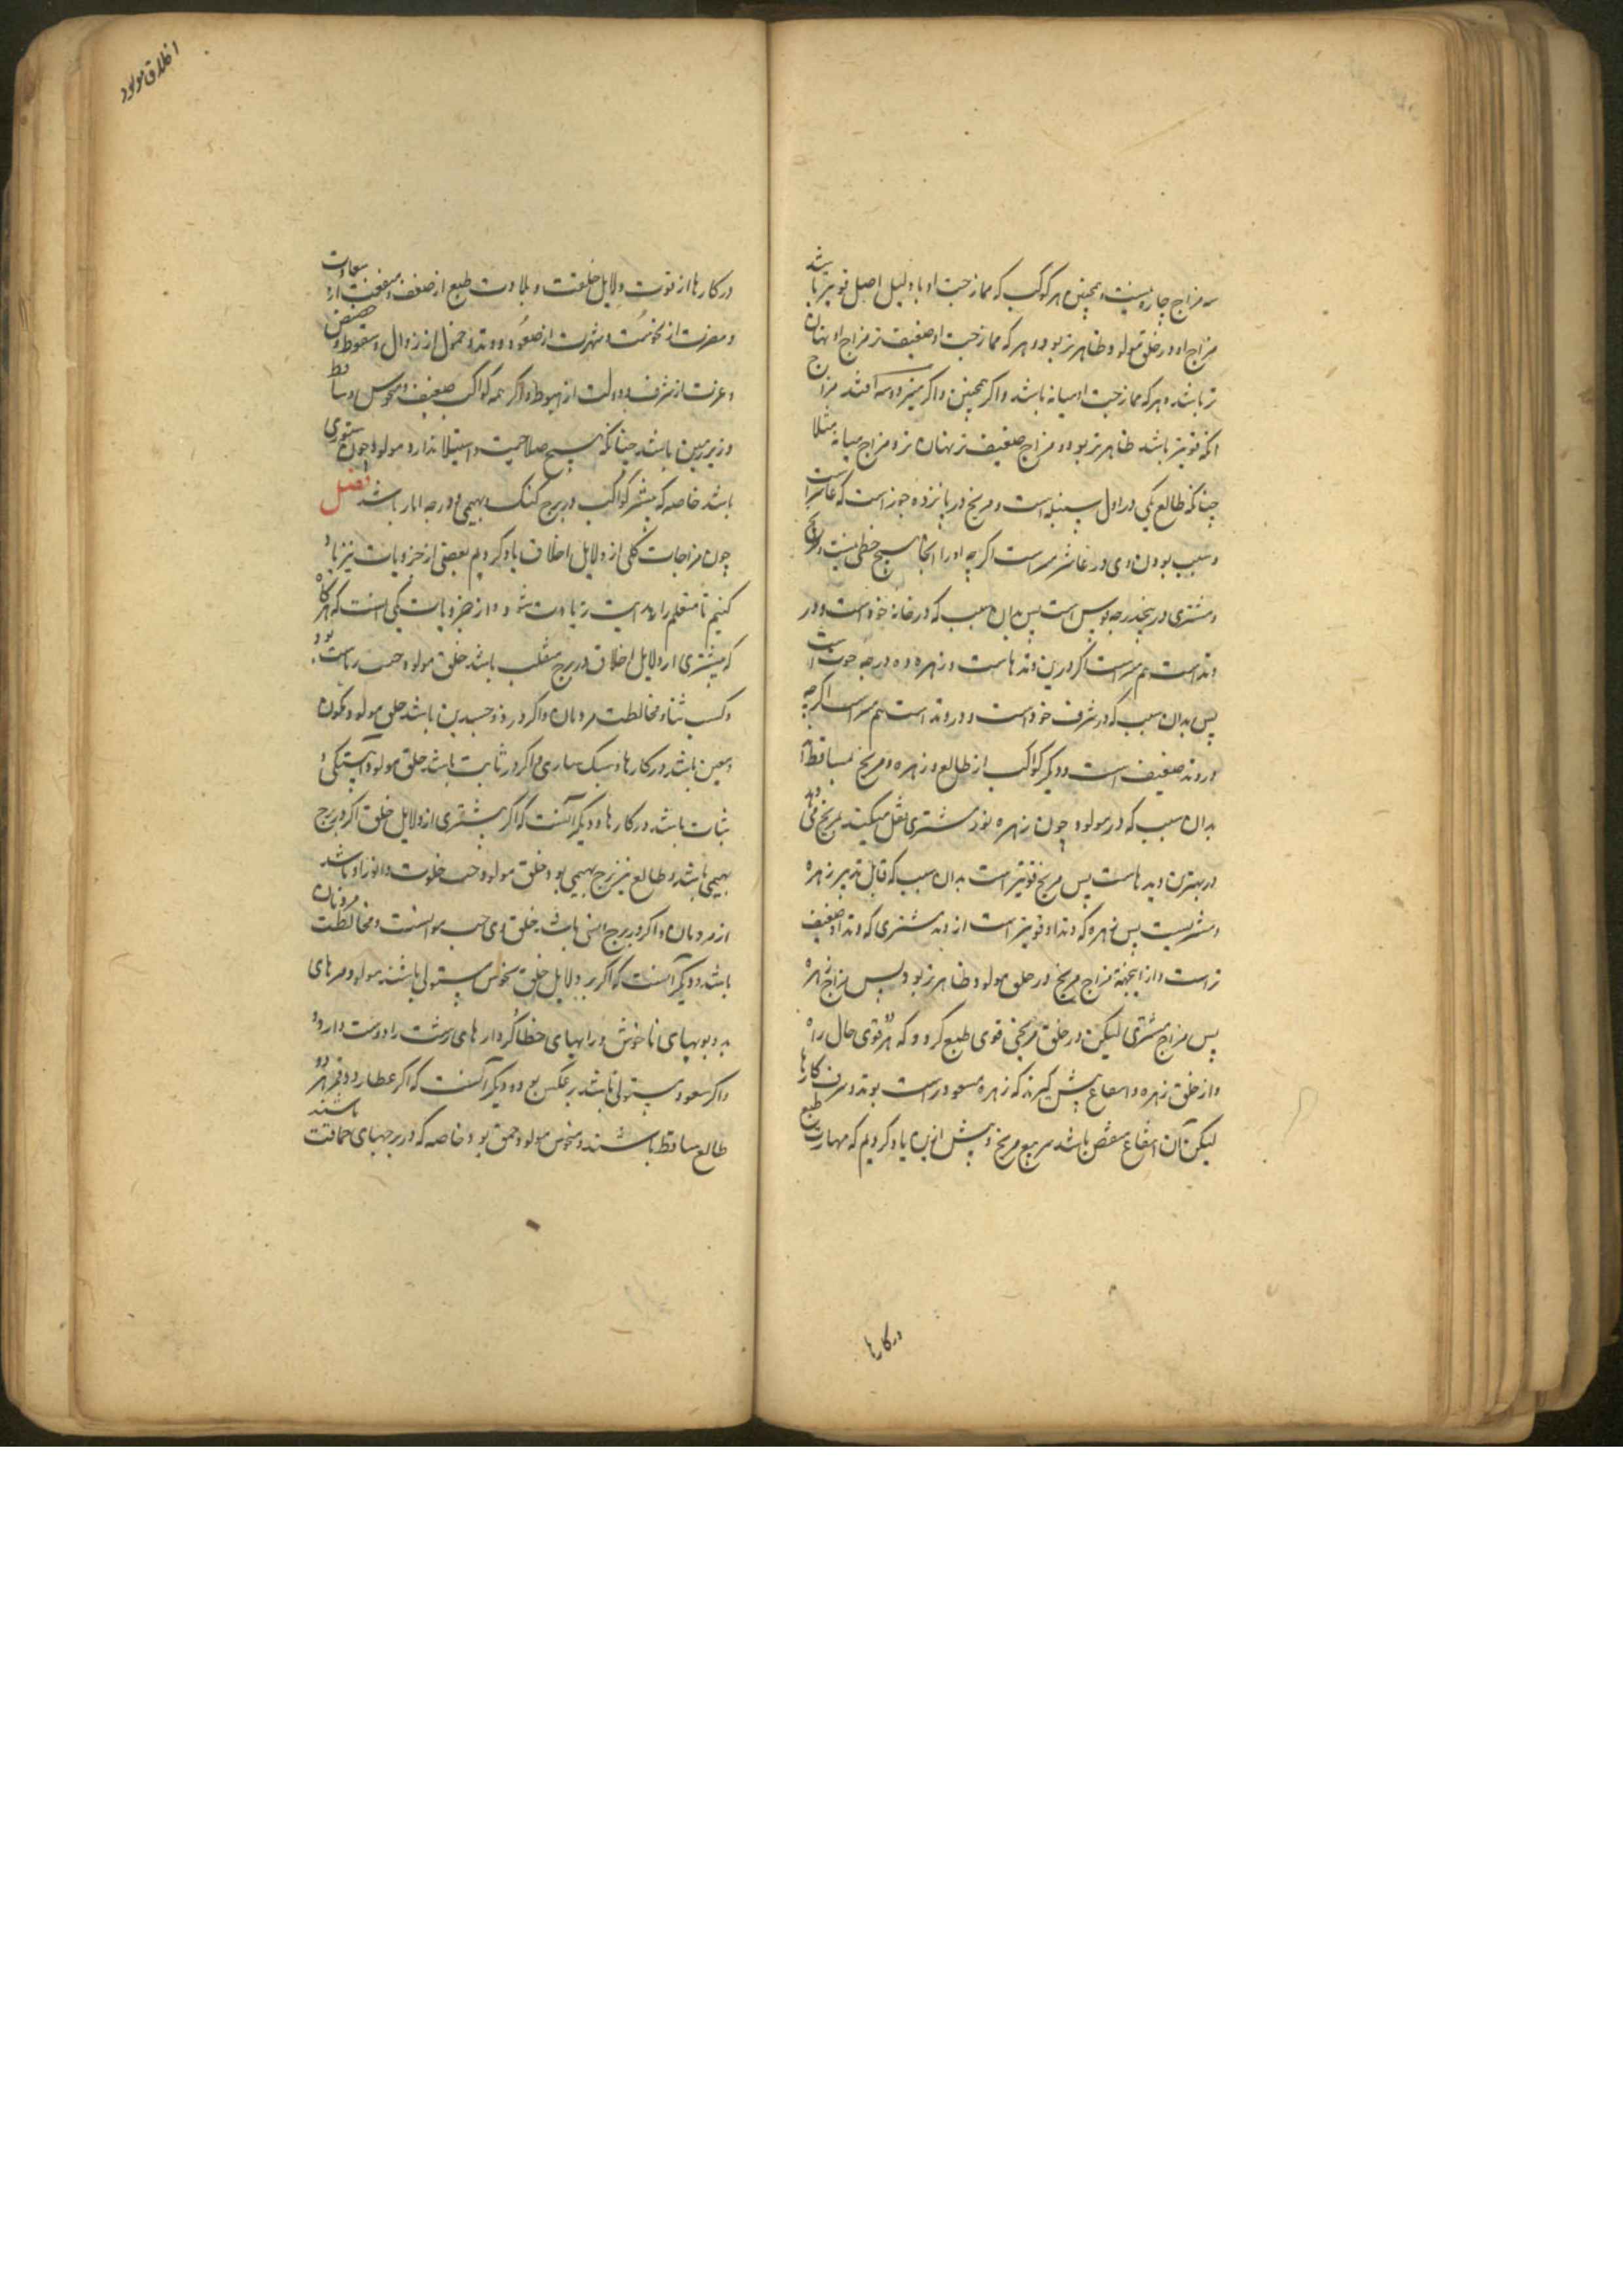 سه مزاج چاره نیست و همچنین هر کوکب که ممازجت او با دلیل اصل قویتر باشد
مزاج او در خلق مولود ظاهرتر بود و هر که ممازجت او ضعیف‌تر مزاج او پنهان
تر باشد و هر که ممازجت او میانه باشد و اگر همچنین و اگر نیز دو سه افتد مزاج
انکه قویتر باشد ظاهرتر بود و مزاج ضعیف‌تر پنهان‌تر و مزاج میانه مثلا
چنانکه طالع یکی در اول سنبله است و مریخ در پانزده جوزا است که عاشر است
و سبب بودن وی در عاشر اگر چه او را آنجا هیچ حظی نیست
و مشتری در پنج درجه قوس است پس بدان سبب که در خانه خود است و در
وتد است هم اگر درین وتدهاست و زهره ده درجه حوت است
پس بدان سبب که در شرف خود است و در وتد است هم اگر چه
در وتد ضعیف است و دیگر کواکب از طالع و زهره و مریخ ساقط‌اند
بدان سبب که در مولود چون زهره نور مشتری نقل میکند بمریخ
در بهترین وتدهاست پس مریخ قویتر است بدان سبب که قابل تدبیر زهره
و مشتریست پس زهره که وتد او قویتر است از وتد مشتری که وتد او ضعیف
تر است و از اینجهة مزاج مریخ در خلق مولود ظاهرتر بود پس مزاج زهره
پس مزاج مشتری لیکن در خلق مریخی قوی طبع گردد که هر قوی حال راه
و از خلق زهره و انتفاع پیش گیرند که زهره مسعود است بوتد و شرف کارها
لیکن آن انتفاع منغص باشد بتربیع مریخ و پیش ازین یاد کردیم که مهارت طبع
در کارها
اخلاق مولود
در کارها از قوت دلایل خلقت و بلادت طبع از ضعف و منفعت از سعادت
و مضرت از نحوست و شهرت از صعود و وتد و خمول از زوال و سقوط و حضیض
و عزت از شرف و ذلت از هبوط و اگر همه کواکب ضعیف و منحوس و ساقط
و زیر زمین باشند چنانکه هیچ صلاحیت و استیلا ندارد مولود چون ستوری
باشد خاصه که بیشتر کواکب در برج گنگ و بهیمی و درجه آبار باشد فصل
چون مزاجات کلی از دلایل اخلاق یاد کردیم بعضی از جزویات نیز یاد
کنیم تا متعلم را هدایت زیادت شود و از جزویات یکی آنست که هر گاه
که بیشتری از دلایل اخلاق در برج منقلب باشد خلق مولود حب ریاست بود
و کسب ثنا و مخالطت مردمان و اگر در ذو جسدین باشد خلق مولود
و معین باشد در کارها و سبکساری و اگر در ثابت باشد خلق مولود آهستگی و
ثبات باشد در کارها و دیگر آنست که اگر بیشتری از دلایل خلق اگر در برج
بهیمی باشد و طالع نیز برج بهیمی بود خلق مولود حب خلوت و انفراد باشد
از مردمان و اگر در برج انسی باشد خلق وی حب موانست و مخالطت مردمان
باشد و دیگر آنست که اگر بر دلایل خلق نحوس مستولی باشند مولود مزهای
بد و بویهای ناخوش و رایهای خطا و کردارهای زشت را دوست دارد
و اگر سعود مستولی باشد بر عکس بود و دیگر آنست که اگر عطارد و قمر هر دو
طالع ساقط باشند و نحوس مولود احمق بود خاصه که در برجهای حماقت باشند